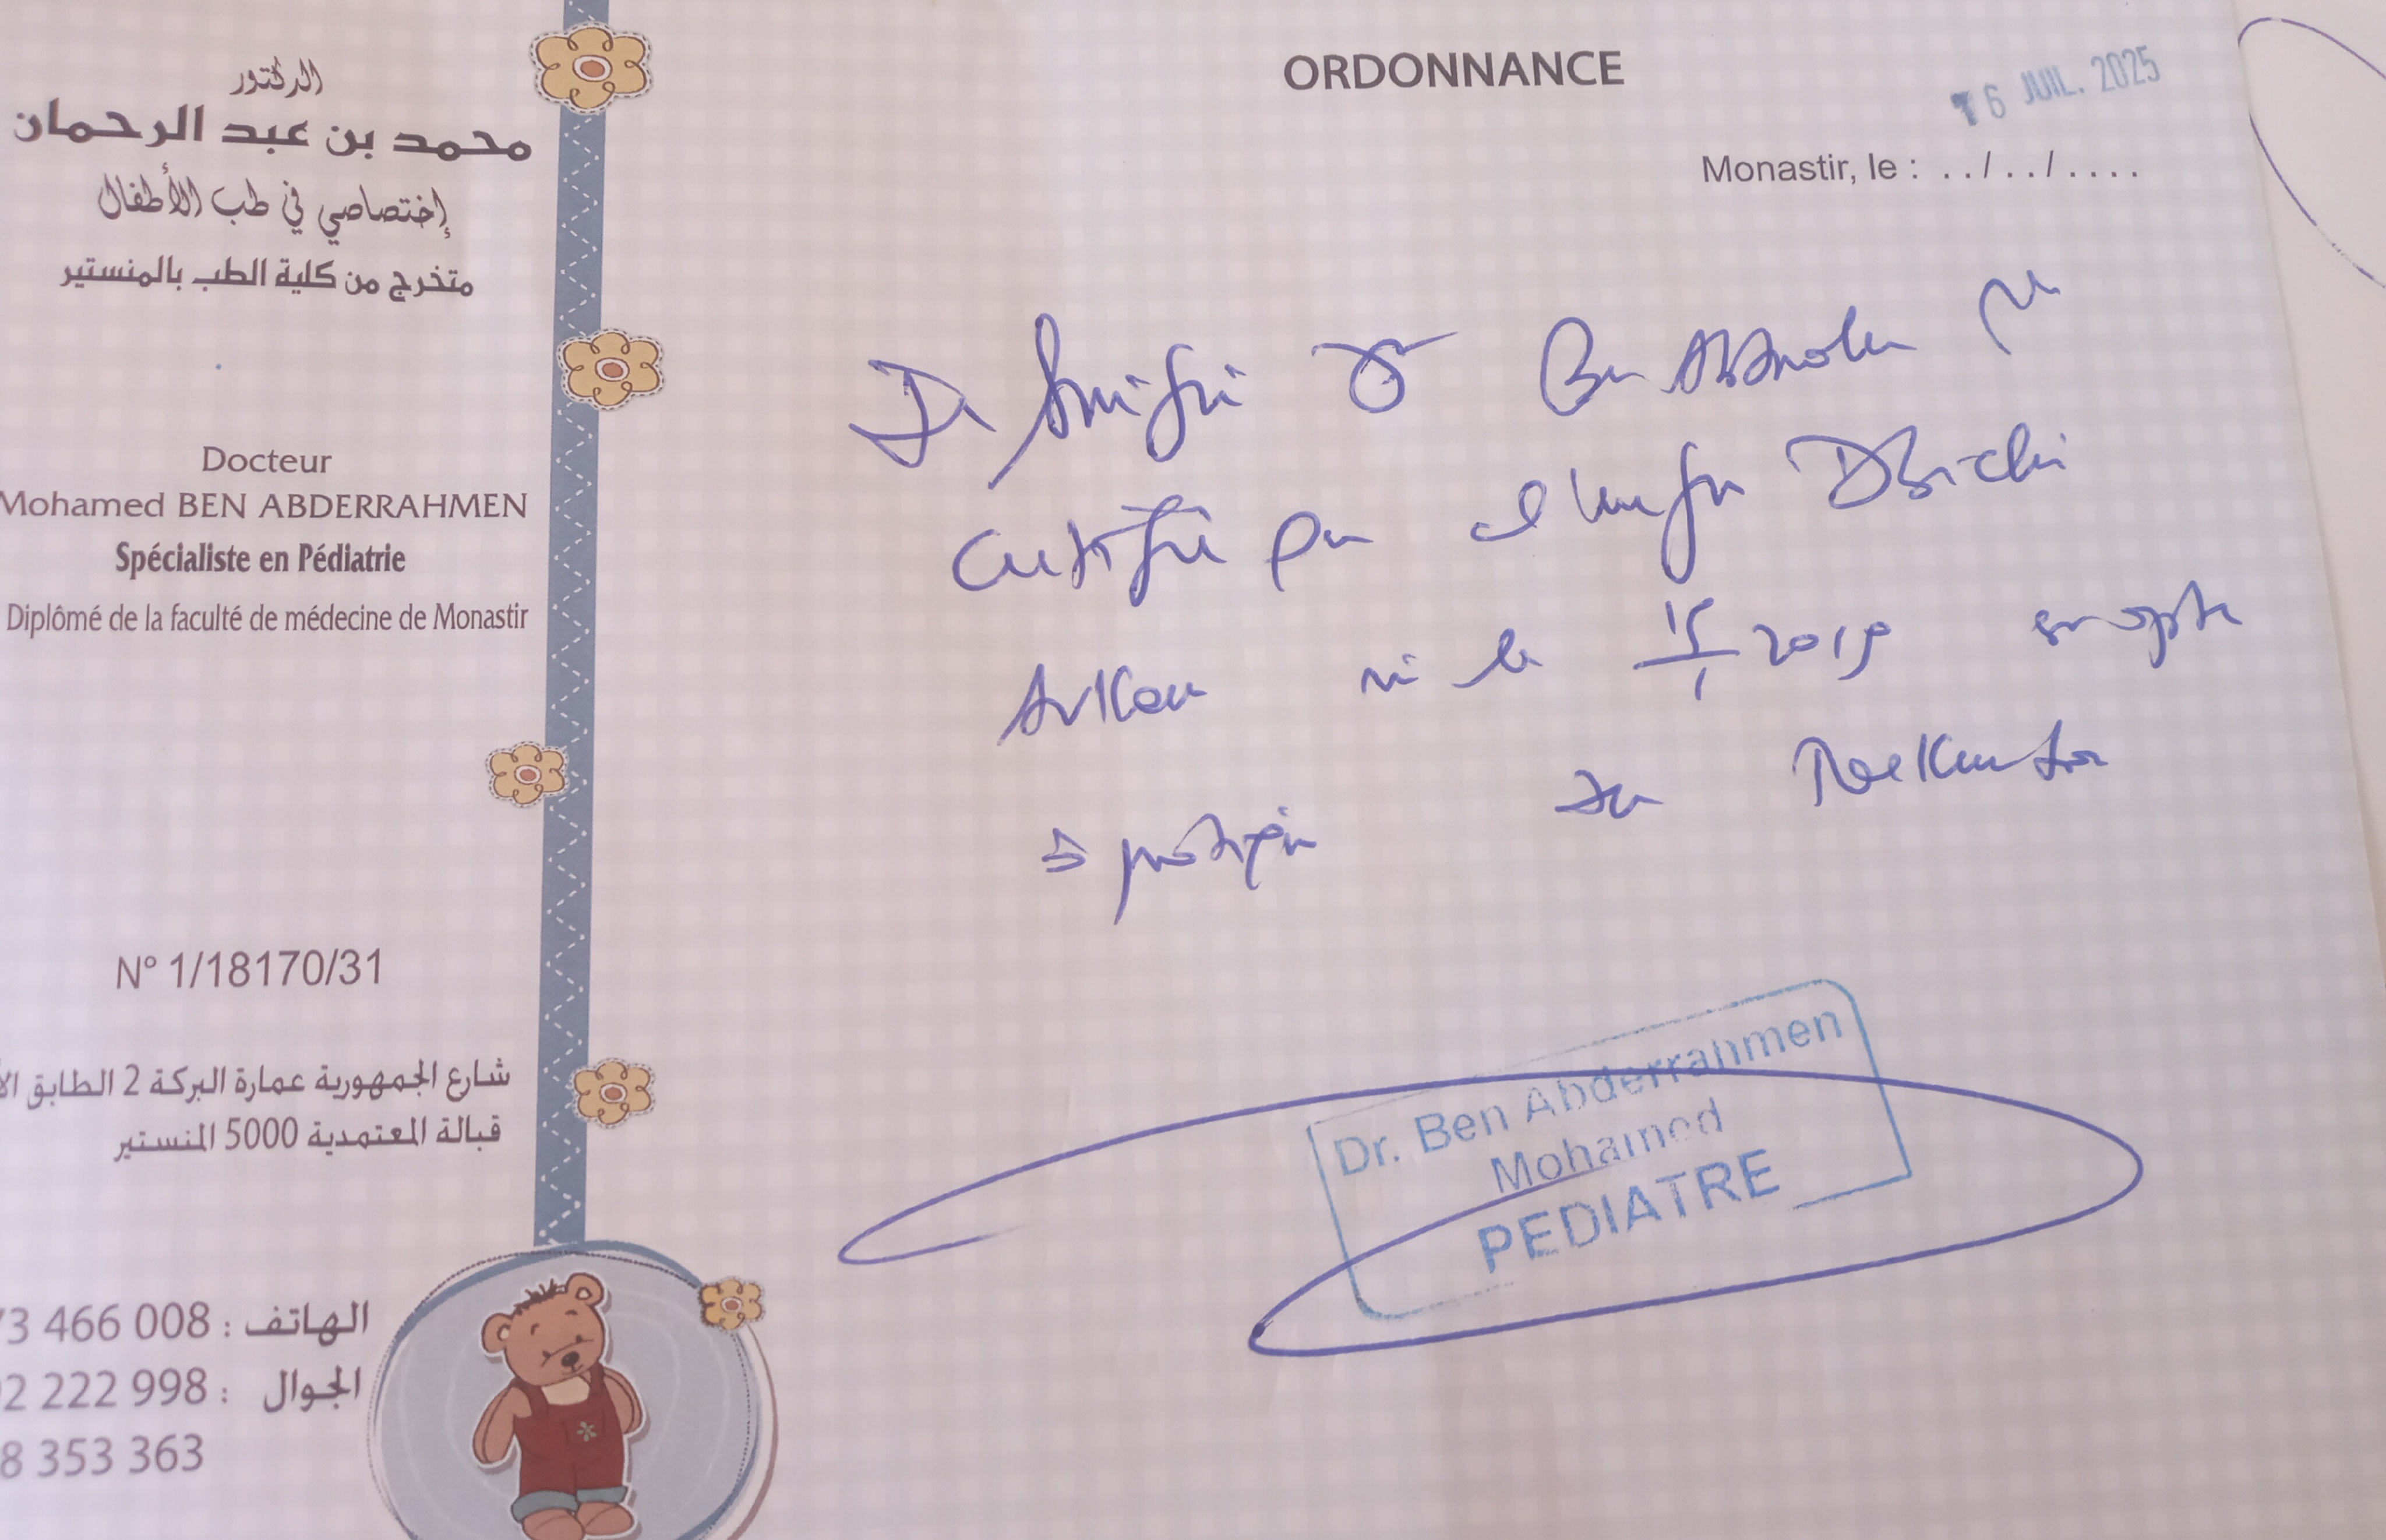 الدكتور
محمد بن عبد الرحمان
إختصاصي في طب الأطفال
متخرج من كلية الطب بالمنستير
Docteur
Mohamed BEN ABDERRAHMEN
Spécialiste en Pédiatrie
Diplômé de la faculté de médecine de Monastir
N° 1/18170/31
شارع الجمهورية عمارة البركة 2 الطابق
قبالة المعتمدية 5000 المنستير
الهاتف : 73 466 008
الجوال : 2 222 998
8 353 363
ORDONNANCE
16 JUIL. 2025
Monastir, le : ../../....
Dr Ben
certifie que l'enfant
né le 15/1 2019
Dr. Ben Abderrahmen
Mohamed
PEDIATRE